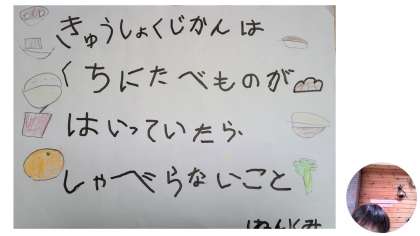 きゅうしょくじかんは
くちにたべものが
はいっていたら
しゃべらないこと